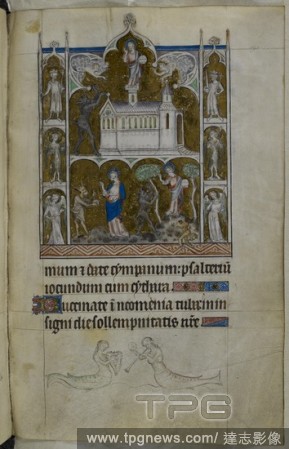 mum & date tympanum: psalteriū
iocundum cum cythara.
Buccinate ī neomenia tuba: inin
signi die sollempnitatis vr̄e
TPG
www.tpgnews.com/達志影像